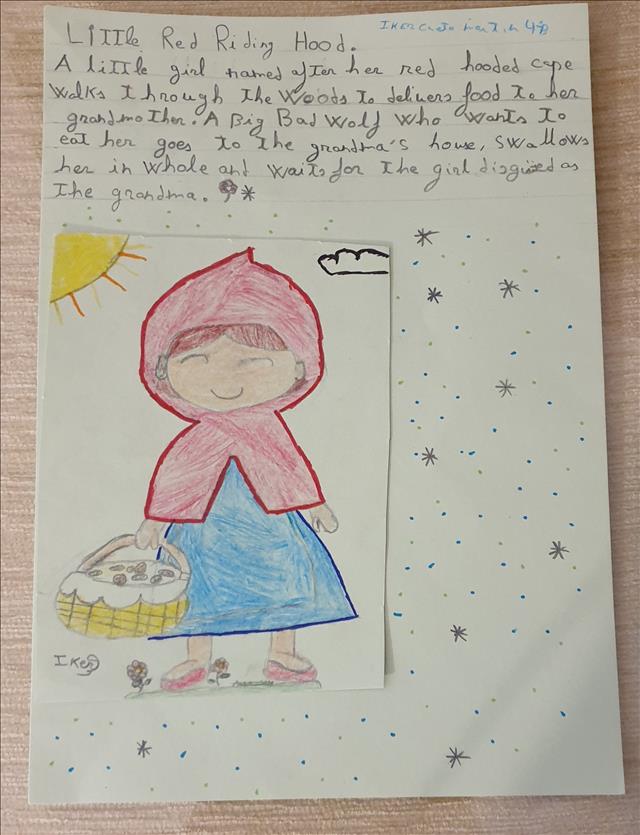 IKER
Little Red Riding Hood.
A little girl named after her red hooded cape
walks through the Woods to delivers food to her
grandmother. A Big Bad Wolf who wants to
eat her goes to the grandma's house, swallows
her in whole and waits for the girl disguised as
the grandma.
Iker